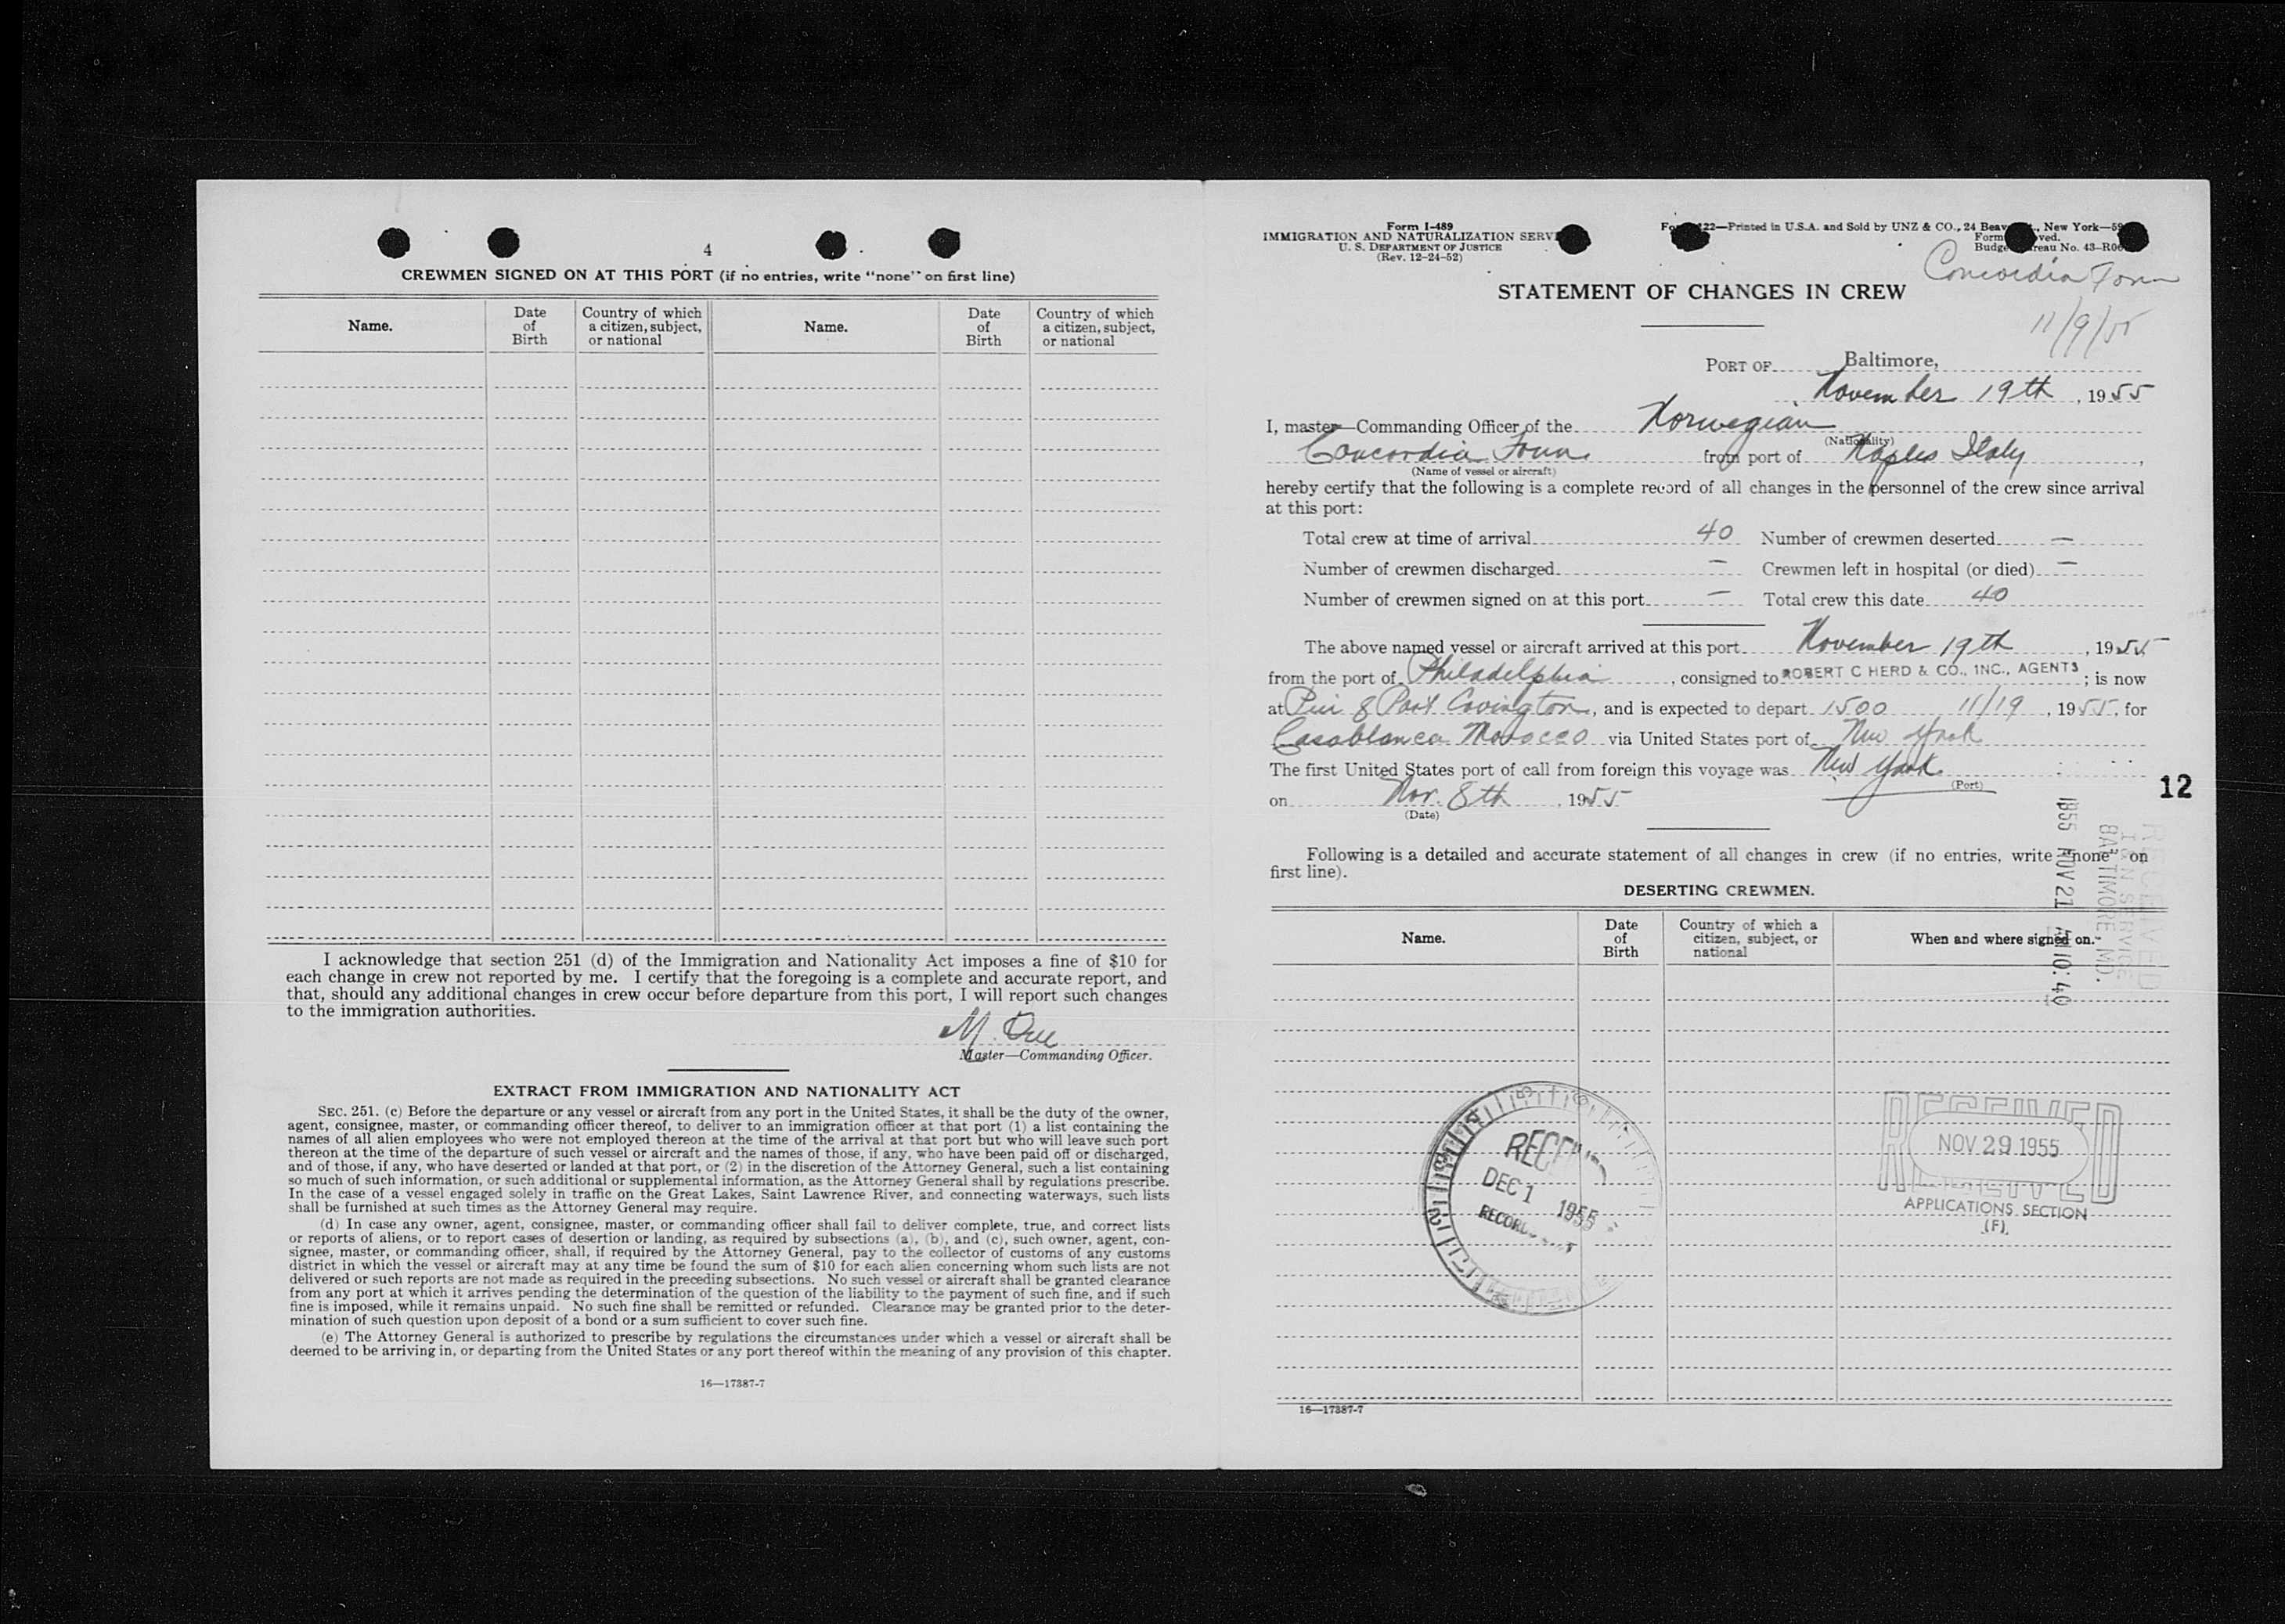 4
CREWMEN SIGNED ON AT THIS PORT (if no entries, write "none" on first line)
Name.
Date of Birth
Country of which a citizen, subject, or national
Name.
Date of Birth
Country of which a citizen, subject, or national
I acknowledge that section 251 (d) of the Immigration and Nationality Act imposes a fine of $10 for
each change in crew not reported by me. I certify that the foregoing is a complete and accurate report, and
that, should any additional changes in crew occur before departure from this port, I will report such changes
to the immigration authorities.
M. Due
Master—Commanding Officer.
EXTRACT FROM IMMIGRATION AND NATIONALITY ACT
SEC. 251. (c) Before the departure or any vessel or aircraft from any port in the United States, it shall be the duty of the owner,
agent, consignee, master, or commanding officer thereof, to deliver to an immigration officer at that port (1) a list containing the
names of all alien employees who were not employed thereon at the time of the arrival at that port but who will leave such port
thereon at the time of the departure of such vessel or aircraft and the names of those, if any, who have been paid off or discharged,
and of those, if any, who have deserted or landed at that port, or (2) in the discretion of the Attorney General, such a list containing
so much of such information, or such additional or supplemental information, as the Attorney General shall by regulations prescribe.
In the case of a vessel engaged solely in traffic on the Great Lakes, Saint Lawrence River, and connecting waterways, such lists
shall be furnished at such times as the Attorney General may require.
(d) In case any owner, agent, consignee, master, or commanding officer shall fail to deliver complete, true, and correct lists
or reports of aliens, or to report cases of desertion or landing, as required by subsections (a), (b), and (c), such owner, agent, con-
signee, master, or commanding officer, shall, if required by the Attorney General, pay to the collector of customs of any customs
district in which the vessel or aircraft may at any time be found the sum of $10 for each alien concerning whom such lists are not
delivered or such reports are not made as required in the preceding subsections. No such vessel or aircraft shall be granted clearance
from any port at which it arrives pending the determination of the question of the liability to the payment of such fine, and if such
fine is imposed, while it remains unpaid. No such fine shall be remitted or refunded. Clearance may be granted prior to the deter-
mination of such question upon deposit of a bond or a sum sufficient to cover such fine.
(e) The Attorney General is authorized to prescribe by regulations the circumstances under which a vessel or aircraft shall be
deemed to be arriving in, or departing from the United States or any port thereof within the meaning of any provision of this chapter.
16—17387-7
Form I-489
IMMIGRATION AND NATURALIZATION
U. S. DEPARTMENT OF JUSTICE
(Rev. 12-24-52)
22—Printed in U.S.A. and Sold by UNZ & CO., 24 New York
Form
No. 43
Concordia Fonn
11/9/55
STATEMENT OF CHANGES IN CREW
PORT OF Baltimore,
November 19th, 1955
I, master—Commanding Officer of the Norwegian
(Nationality)
Concordia Fonn from port of Naples Italy,
(Name of vessel or aircraft)
hereby certify that the following is a complete record of all changes in the personnel of the crew since arrival
at this port:
Total crew at time of arrival 40 Number of crewmen deserted —
Number of crewmen discharged — Crewmen left in hospital (or died) —
Number of crewmen signed on at this port — Total crew this date 40
The above named vessel or aircraft arrived at this port November 19th, 1955
from the port of Philadelphia, consigned to ROBERT C HERD & CO., INC., AGENTS; is now
at Pier 8 Port Covington, and is expected to depart 1500 11/19, 1955, for
Casablanca Morocco via United States port of New York
The first United States port of call from foreign this voyage was New York
(Port)
on Nov. 8th, 1955
(Date)
12
RECEIVED
I & N SERVICE
BALTIMORE MD.
1955 NOV 21 AM 10:40
Following is a detailed and accurate statement of all changes in crew (if no entries, write "none" on
first line).
DESERTING CREWMEN.
Name.
Date of Birth
Country of which a citizen, subject, or national
When and where signed on.
DEC 1 1955
RECEIVED
NOV 29 1955
APPLICATIONS SECTION
(F)
16—17387-7